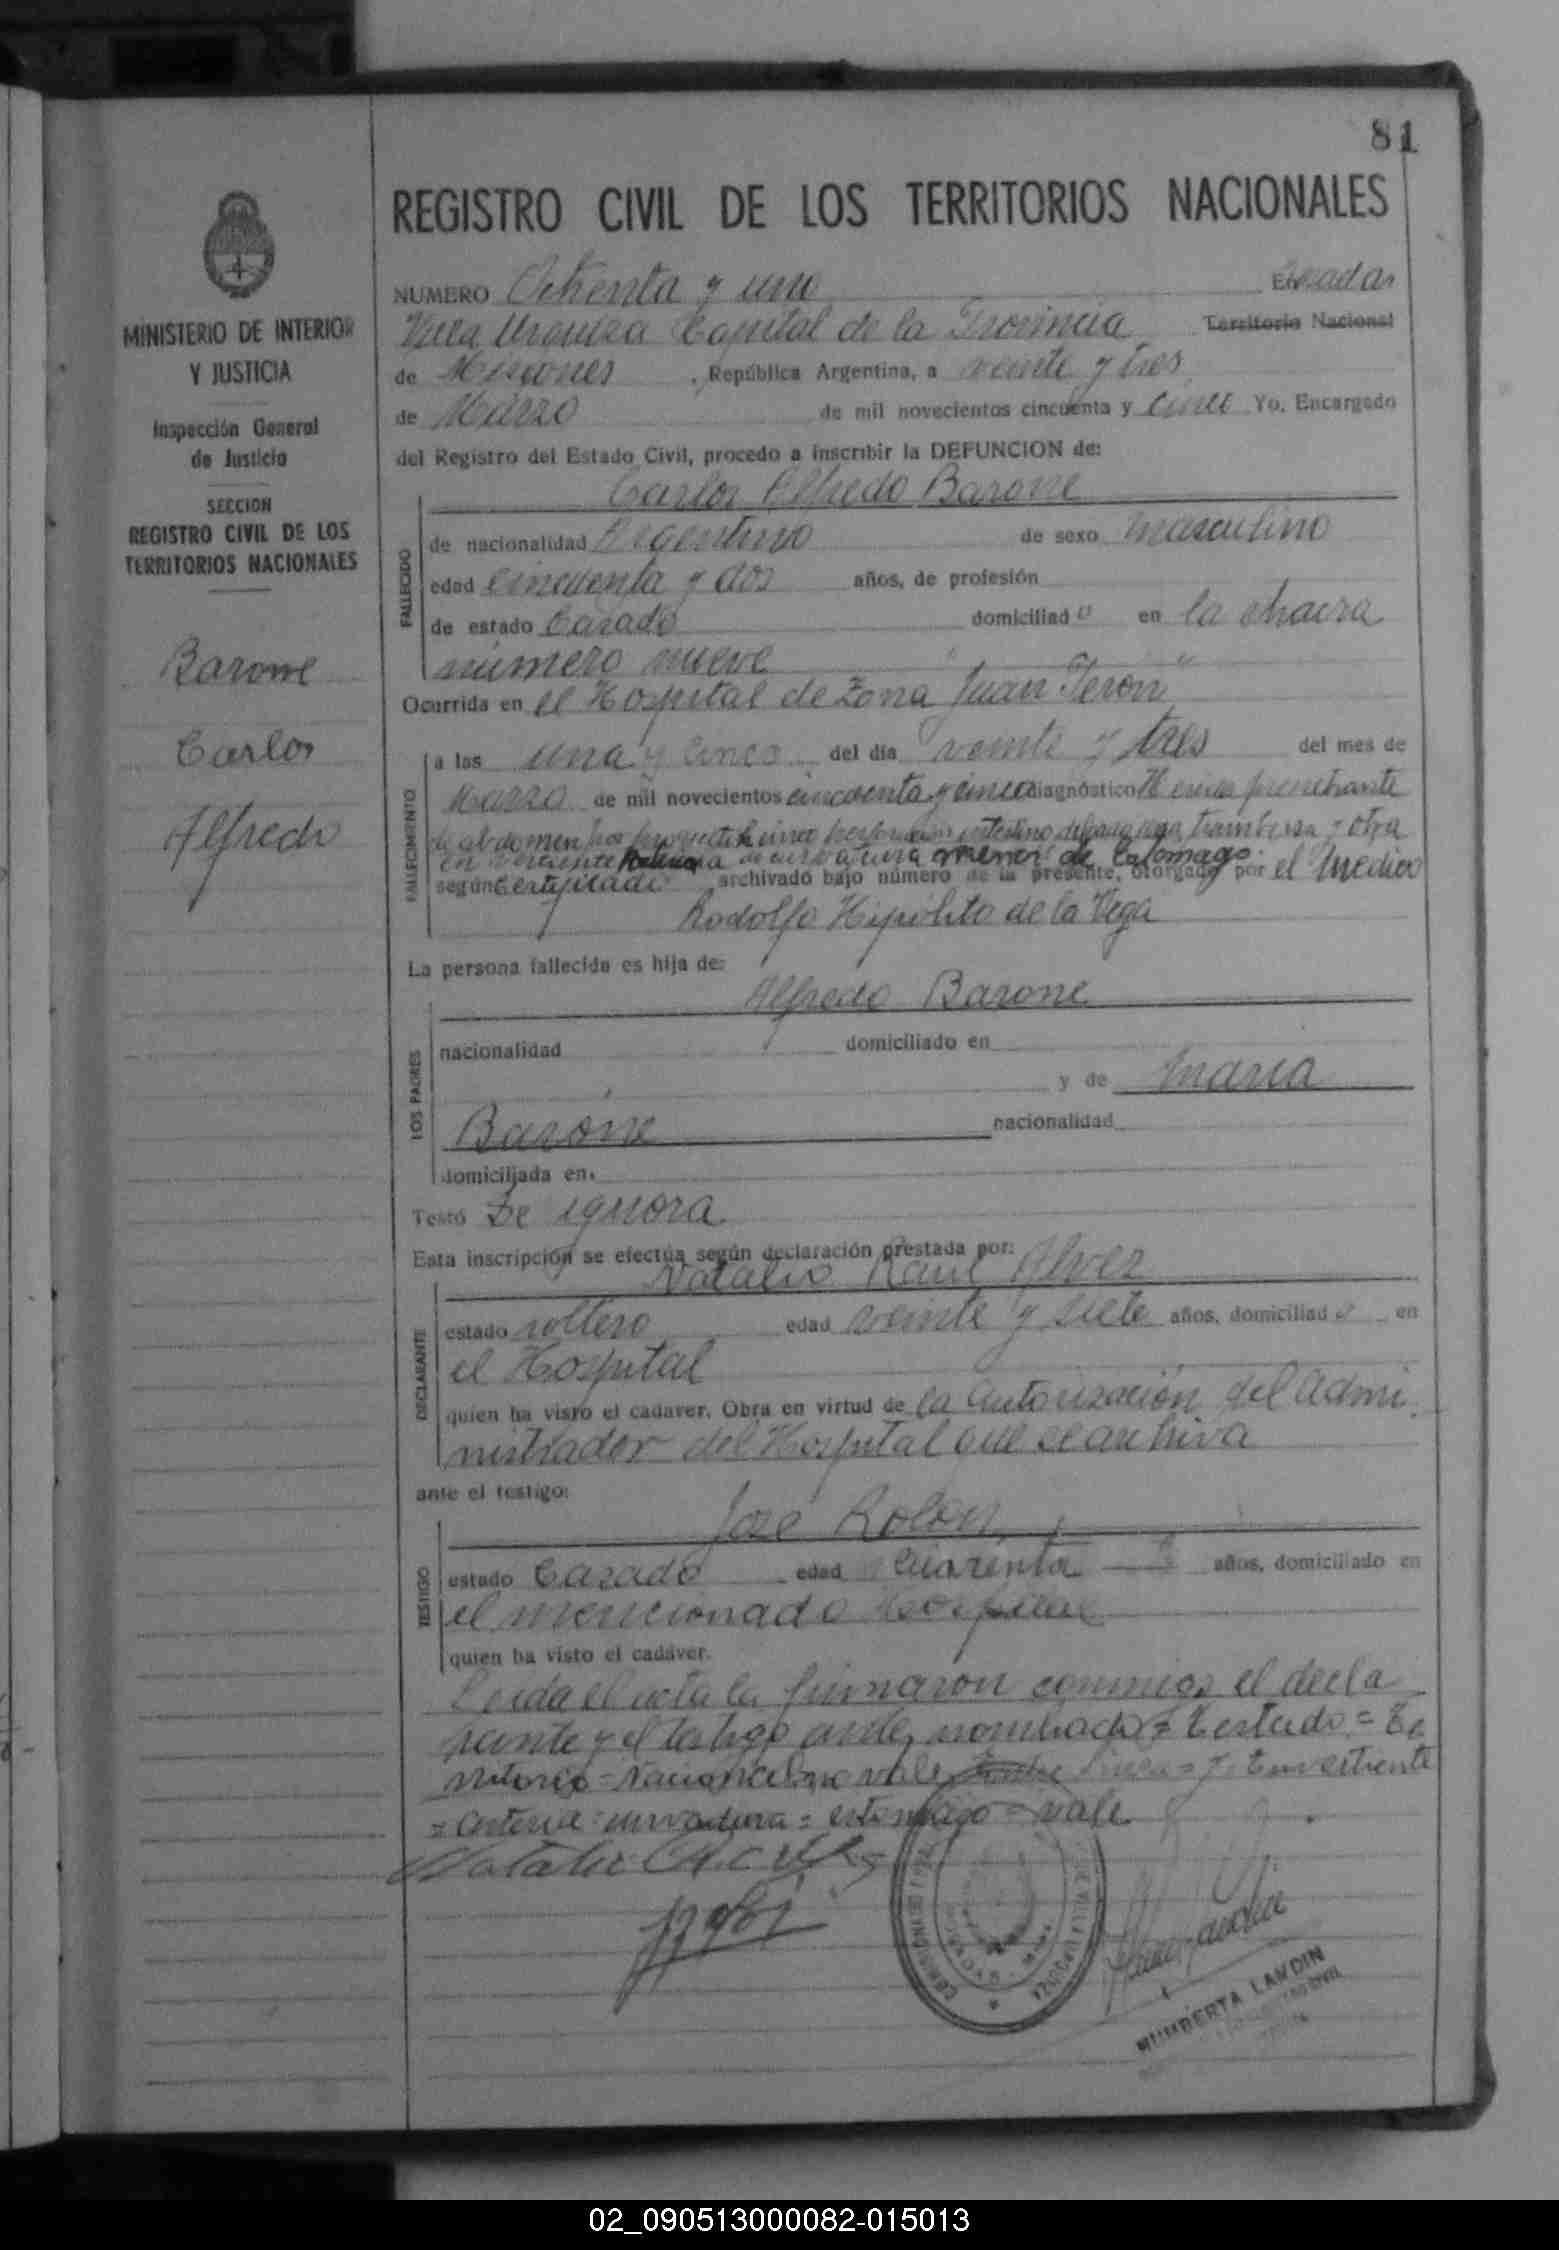 81
REGISTRO CIVIL DE LOS TERRITORIOS NACIONALES
MINISTERIO DE INTERIOR
Y JUSTICIA
Inspección General
de Justicia
SECCION
REGISTRO CIVIL DE LOS
TERRITORIOS NACIONALES
Barone
Carlos
Alfredo
NUMERO Ochenta y uno En
Villa Urquiza Capital de la Provincia Territorio Nacional
de Misiones, República Argentina, a veinte y tres
de Marzo de mil novecientos cincuenta y cinco Yo, Encargado
del Registro del Estado Civil, procedo a inscribir la DEFUNCION de:
Carlos Alfredo Barone
FALLECIDO
de nacionalidad Argentino de sexo masculino
edad Cincuenta y dos años, de profesión
de estado Casado domiciliado en la chacra
número nueve
Ocurrida en el Hospital de Zona "Juan Perón"
FALLECIMIENTO
a las una y cinco del día veinte y tres del mes de
Marzo de mil novecientos cincuenta y cinco diagnóstico Herida penetrante
de abdomen por proyectil cinco intestino delgado una y otra
en vertiente de curvatura menor de estomago.
según certificado archivado bajo número de la presente, otorgado por el Medico
Rodolfo Hipólito de la Vega
La persona fallecida es hija de:
Alfredo Barone
LOS PADRES
nacionalidad domiciliado en
y de María
Barone nacionalidad
domiciliada en
Testó Se ignora
Esta inscripción se efectúa según declaración prestada por:
Natalio Raul Alvez
DECLARANTE
estado soltero edad veinte y siete años, domiciliado en
el Hospital
quien ha visto el cadaver. Obra en virtud de la autorización del admi
nistrador del Hospital que se archiva
ante el testigo:
José Rolon
TESTIGO
estado Casado edad Cuarenta años, domiciliado en
el mencionado Hospital
quien ha visto el cadáver.
Leida el acta la firmaron conmigo el decla
rante y el testigo antes nombrado = Testado = Te
rritorio = Nacional no vale linea = vertiente
= curvadura = estomago = vale
VILLA URQUIZA
MISIONES
HUMBERTA LANDIN
02_090513000082-015013